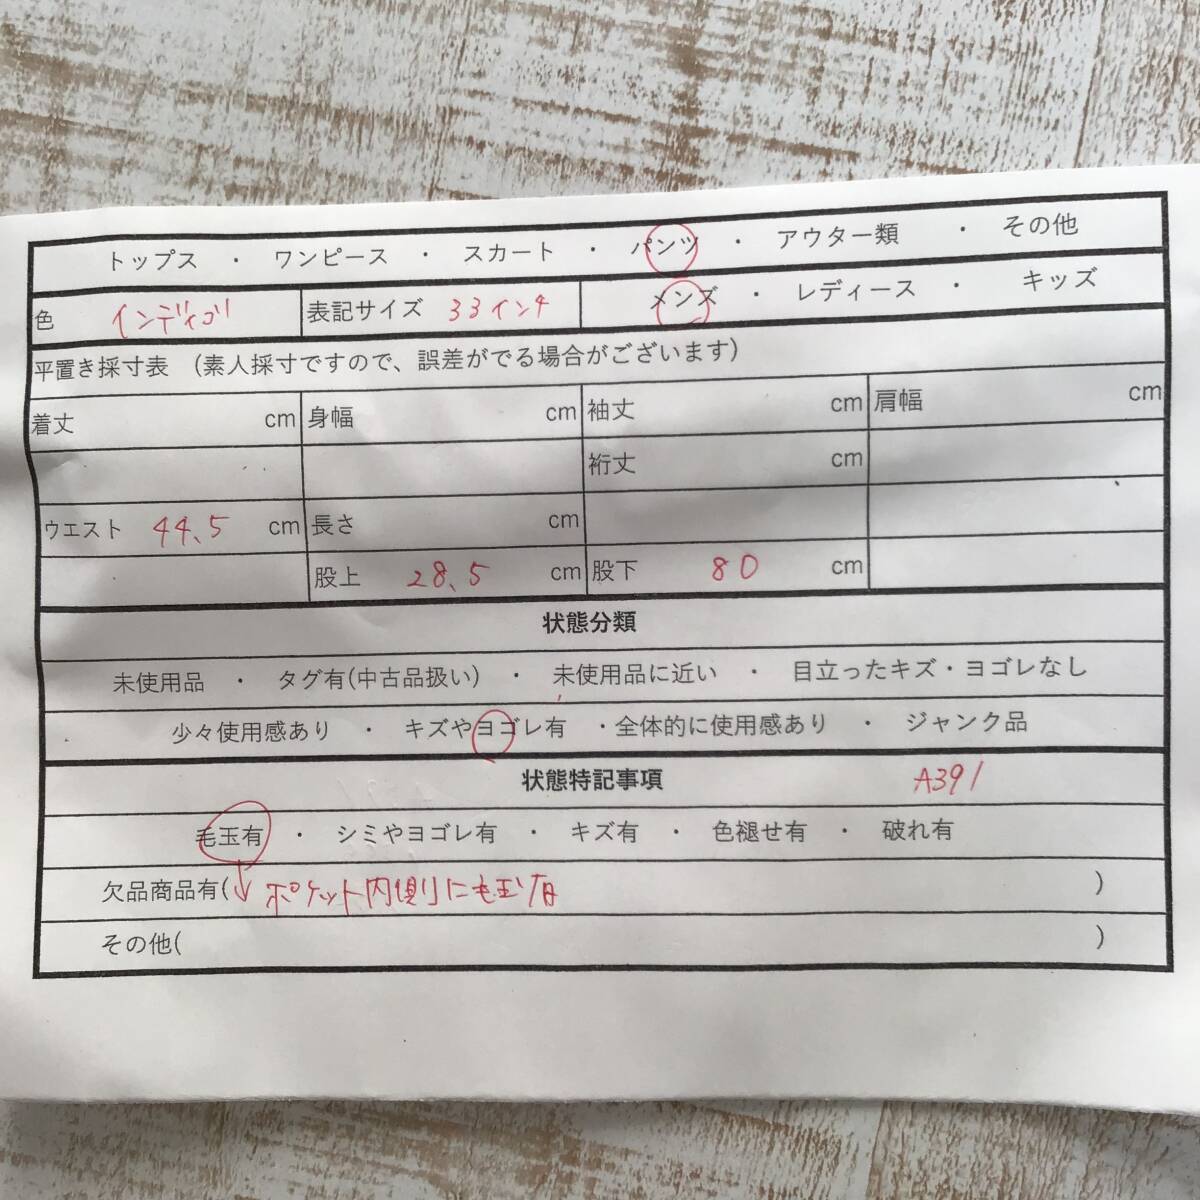 トップス ・ ワンピース ・ スカート ・ パンツ ・ アウター類 ・ その他
色 インディゴ 表記サイズ 33インチ メンズ ・ レディース ・ キッズ
平置き採寸表 (素人採寸ですので、誤差がでる場合がございます)
着丈 cm 身幅 cm 袖丈 cm 肩幅 cm
裄丈 cm
ウエスト 44.5 cm 長さ cm
股上 28.5 cm 股下 80 cm
状態分類
未使用品 ・ タグ有(中古品扱い) ・ 未使用品に近い ・ 目立ったキズ・ヨゴレなし
少々使用感あり ・ キズやヨゴレ有 ・全体的に使用感あり ・ ジャンク品
状態特記事項 A391
毛玉有 ・ シミやヨゴレ有 ・ キズ有 ・ 色褪せ有 ・ 破れ有
欠品商品有(↓ ポケット内側に毛玉有 )
その他( )